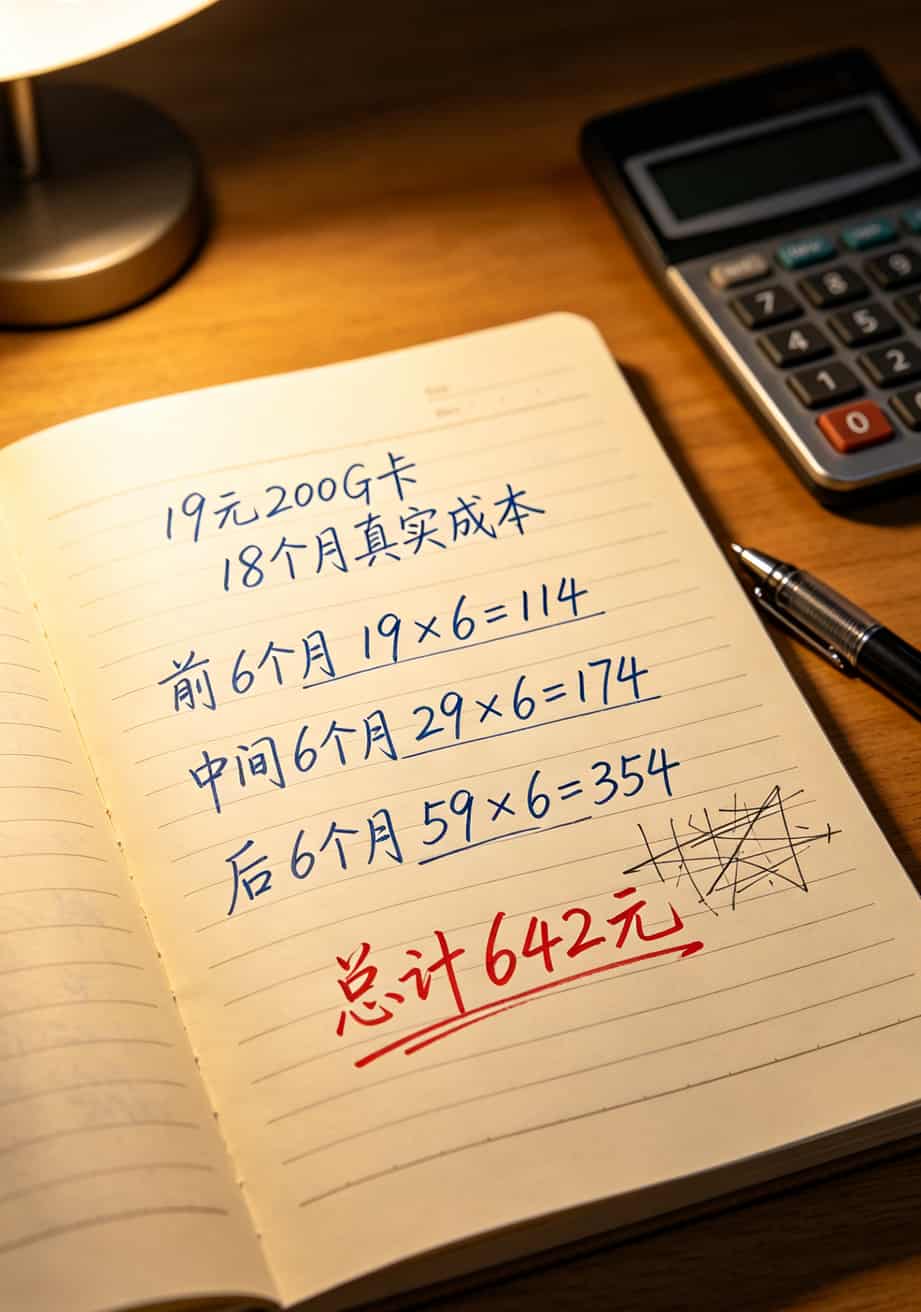 19元200G卡
18个月真实成本
前6个月 19×6=114
中间6个月 29×6=174
后6个月 59×6=354
总计642元
7
8
9
4
5
1
2
0